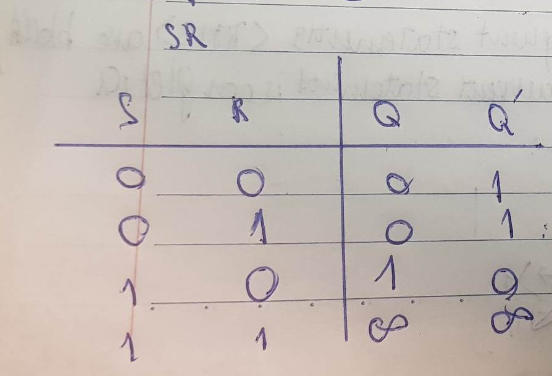 SR
S R Q Q'
0 0 0 1
0 1 0 1
1 0 1 0
1 1 ∞ ∞